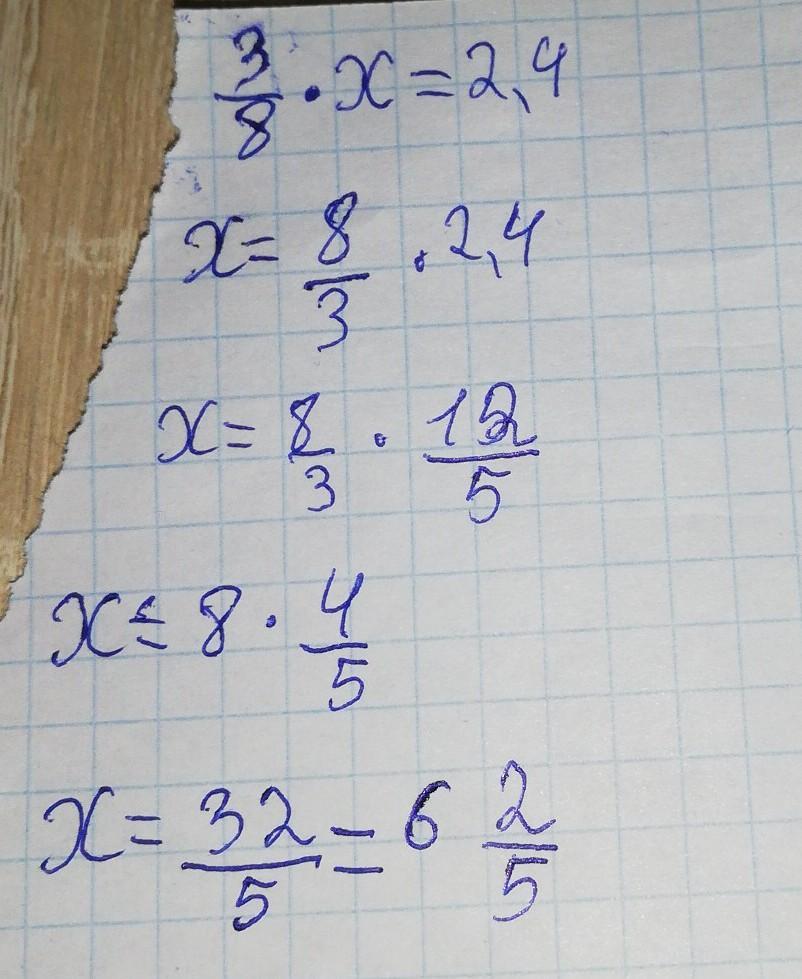 3/8 · x = 2,4
x = 8/3 · 2,4
x = 8/3 · 12/5
x = 8 · 4/5
x = 32/5 = 6 2/5